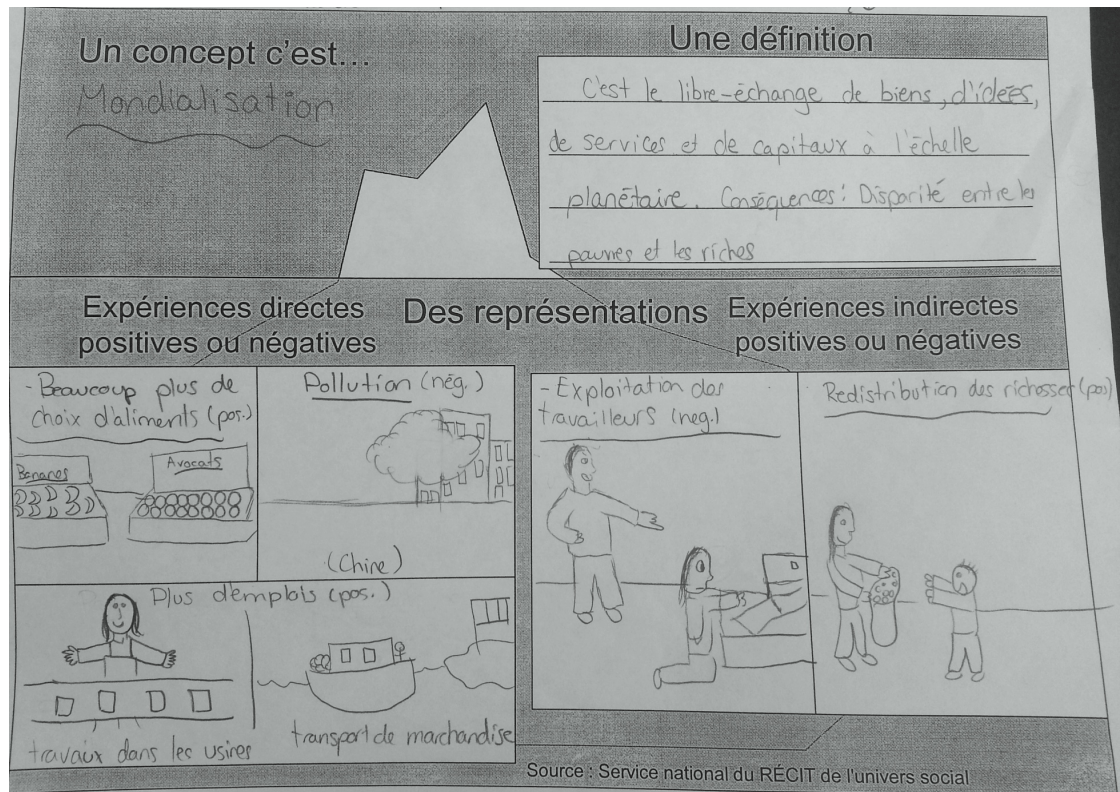 Un concept c'est...
Mondialisation
Une définition
C'est le libre-échange de biens, d'idées,
de services et de capitaux à l'échelle
planétaire. Conséquences : Disparité entre les
pauvres et les riches
Expériences directes
positives ou négatives
Des représentations
Expériences indirectes
positives ou négatives
- Beaucoup plus de
choix d'aliments (pos.)
Bananes
Avocats
Pollution (nég.)
(Chine)
Plus d'emplois (pos.)
travaux dans les usines
transport de marchandise
- Exploitation des
travailleurs (neg.)
Redistribution des richesses (pos)
Source : Service national du RÉCIT de l'univers social